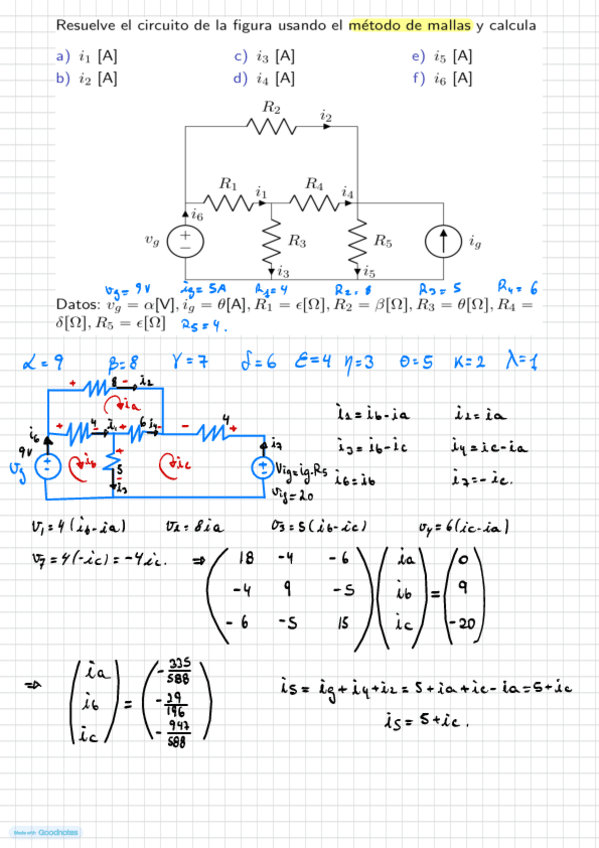 Resuelve el circuito de la figura usando el método de mallas y calcula
a) i₁ [A] c) i₃ [A] e) i₅ [A]
b) i₂ [A] d) i₄ [A] f) i₆ [A]
R₂ i₂
R₁ i₁ R₄ i₄
i₆
v_g R₃ R₅ i_g
i₃ i₅
v_g = 9V i_g = 5A R₁ = 4 R₂ = 8 R₃ = 5 R₄ = 6
Datos: v_g = α[V], i_g = θ[A], R₁ = ε[Ω], R₂ = β[Ω], R₃ = θ[Ω], R₄ =
δ[Ω], R₅ = ε[Ω] R₅ = 4.
α = 9 β = 8 γ = 7 δ = 6 ε = 4 η = 3 θ = 5 κ = 2 λ = 1
+ 8 - i₂
ia
i₆ + 4 - i₁ + 6 i₄ - - 4 +
9V ib 5 ic i₇
Vg i₃ Vig = ig·R₅
Vig = 20
i₁ = ib - ia i₂ = ia
i₃ = ib - ic i₄ = ic - ia
i₆ = ib i₇ = -ic.
V₁ = 4(ib - ia) V₂ = 8ia V₃ = 5(ib - ic) V₄ = 6(ic - ia)
V₇ = 4(-ic) = -4ic. ⇒ ( 18 -4 -6 ) ( ia ) = ( 0 )
( -4 9 -5 ) ( ib ) ( 9 )
( -6 -5 15 ) ( ic ) ( -20 )
⇒ ( ia ) = ( -335/588 )
( ib ) ( -29/196 )
( ic ) ( -947/588 )
i₅ = ig + i₄ + i₂ = 5 + ia + ic - ia = 5 + ic
i₅ = 5 + ic.
Made with Goodnotes